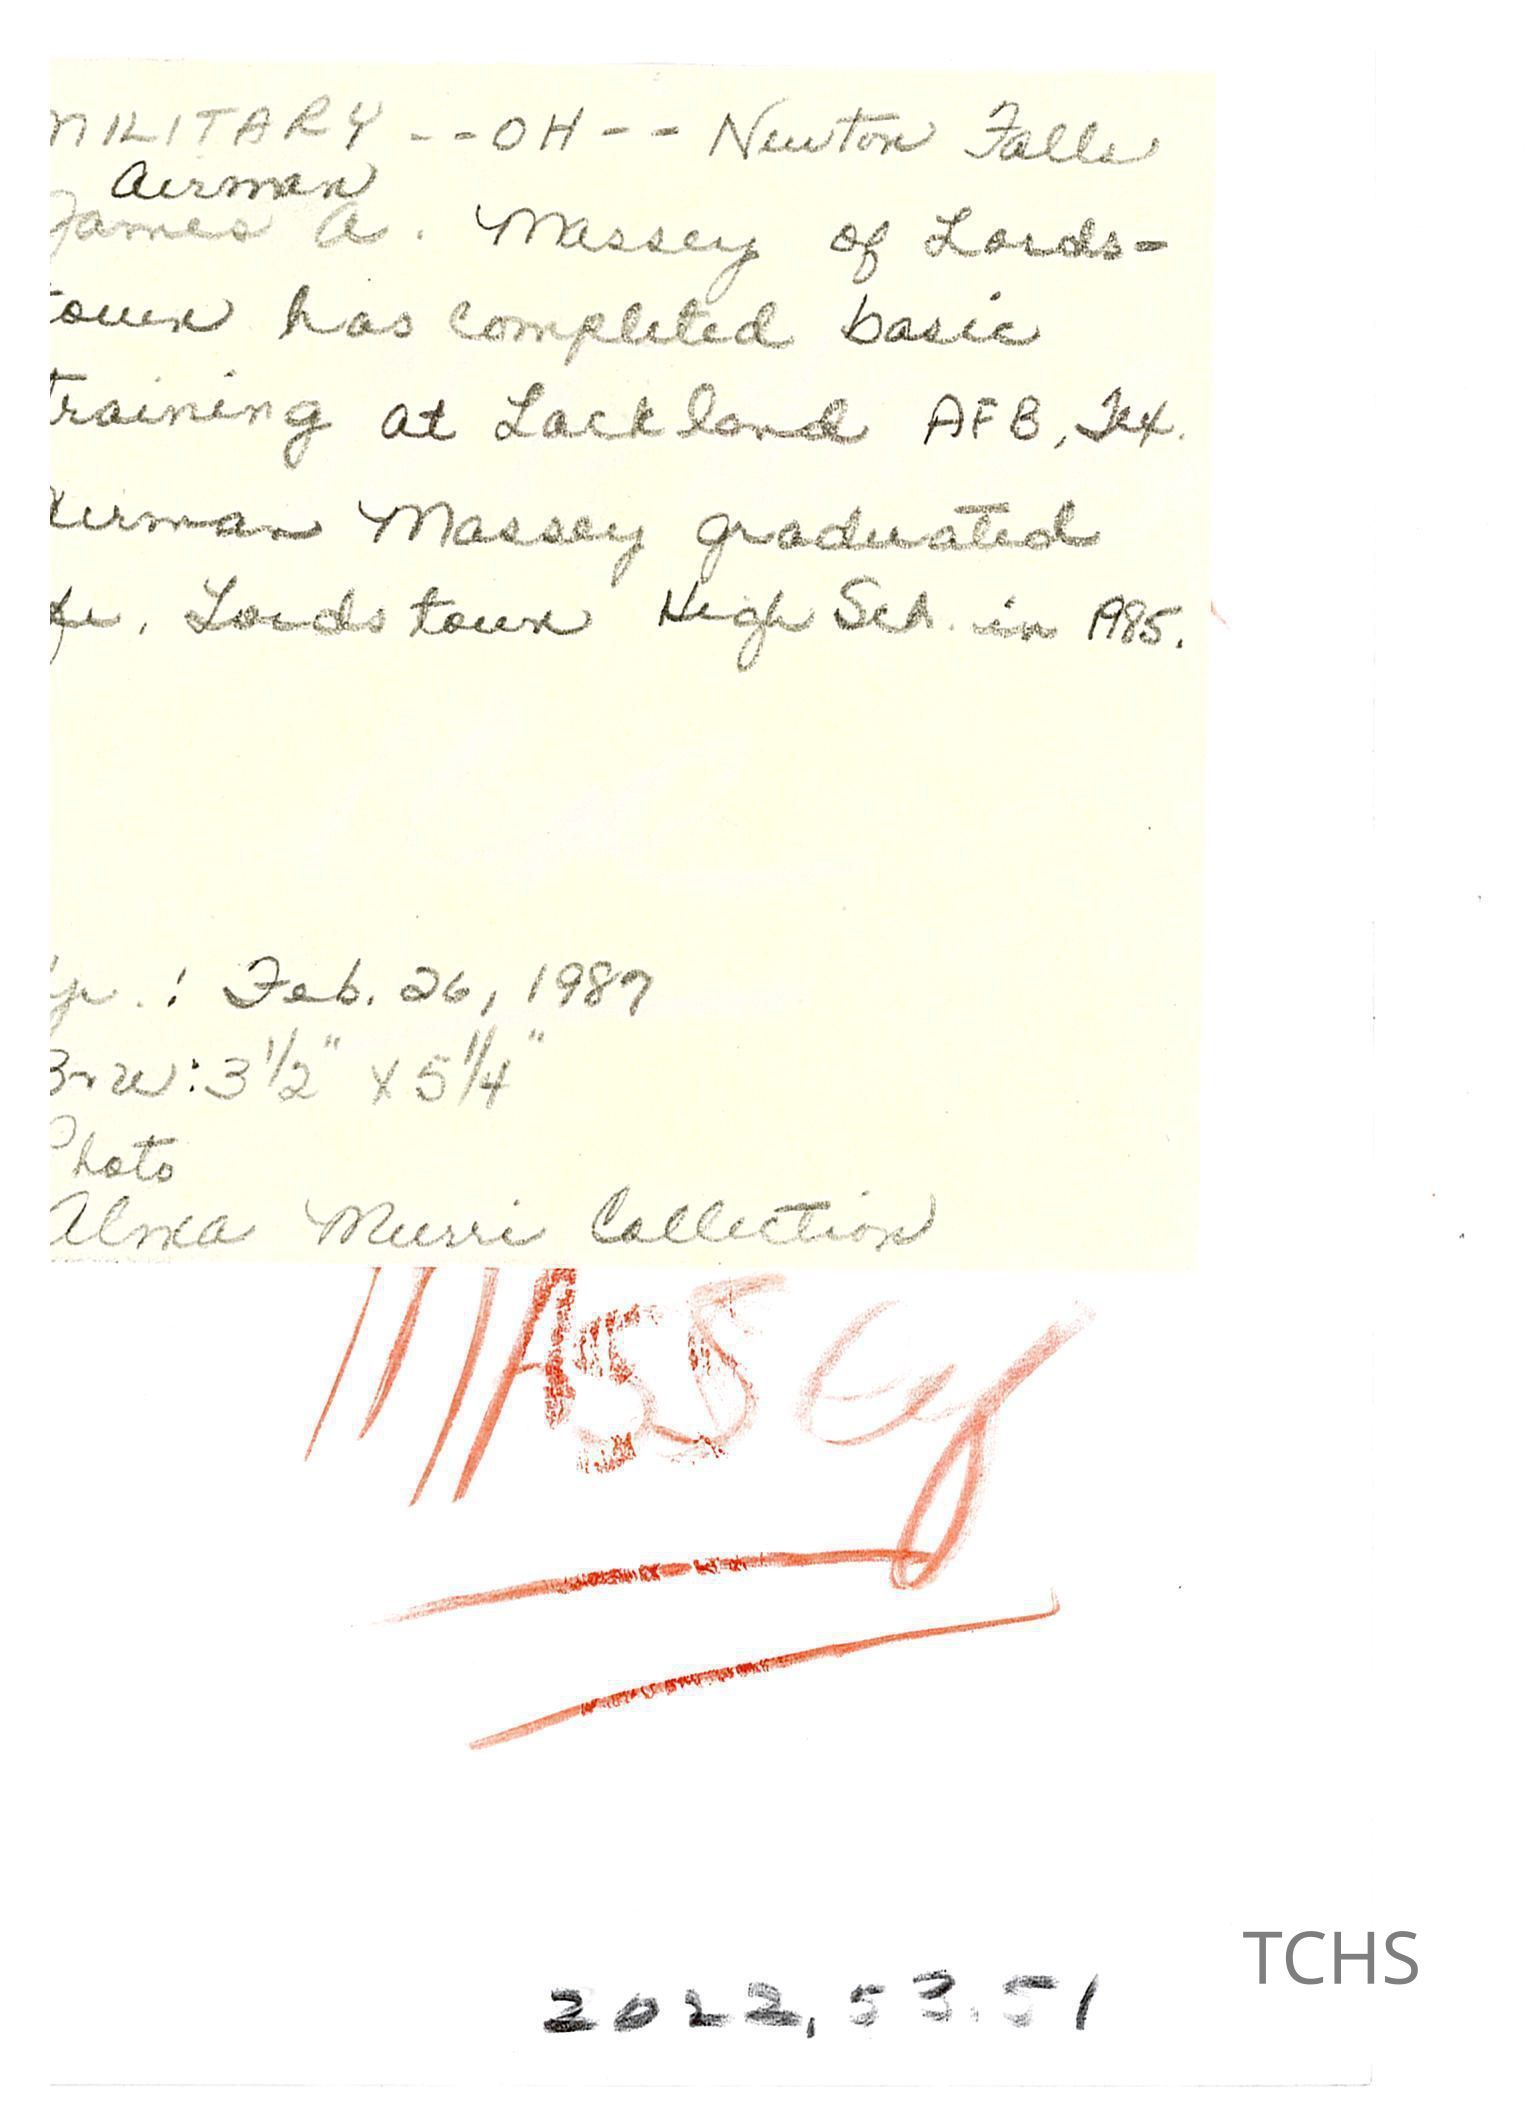 MILITARY --OH-- Newton Falls
Airman
James A. Massey of Lords-
town has completed basic
training at Lackland AFB, Tex.
Airman Massey graduated
fr. Lordstown High Sch. in 1985.
: Feb. 26, 1987
B+W: 3 1/2" x 5 1/4"
Photo
Alma Murri Collection
MASSey
TCHS
2022.53.51